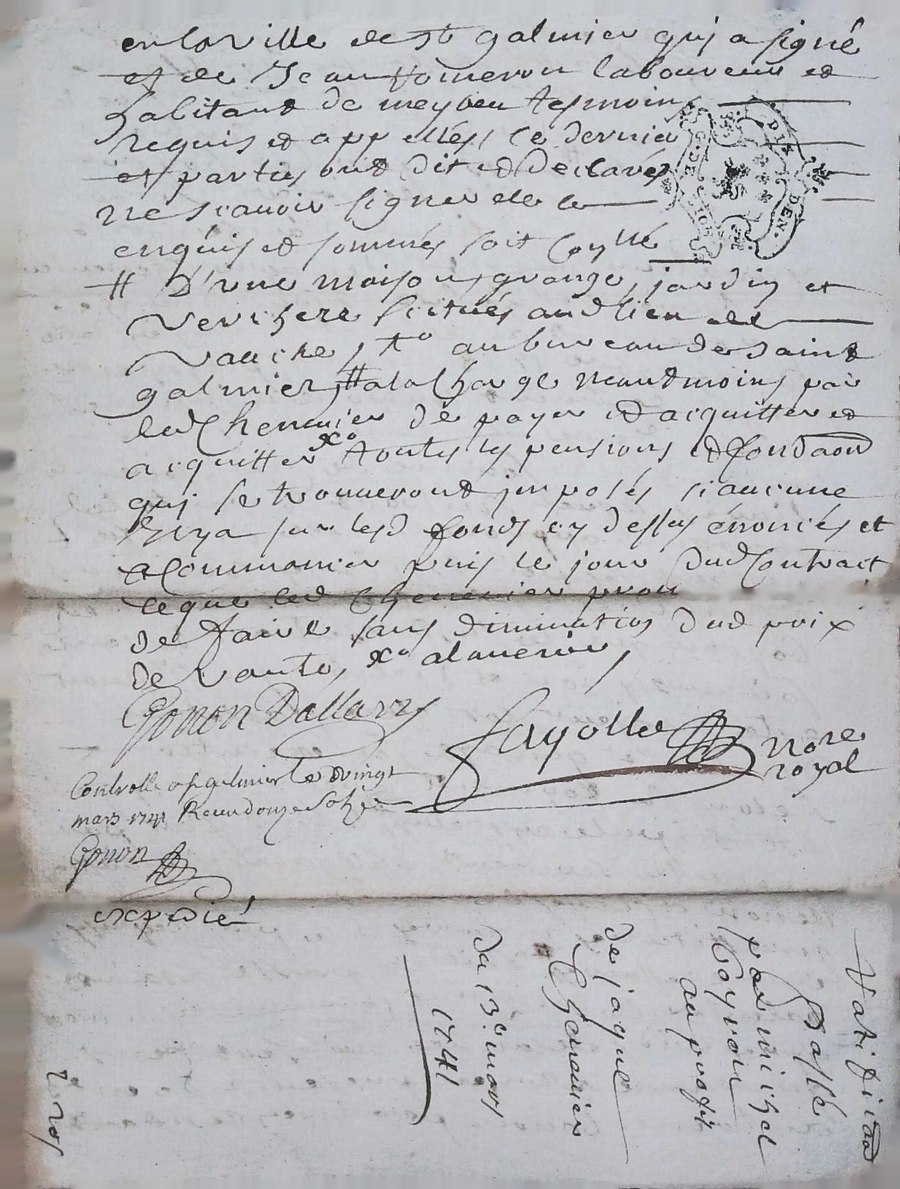 en la ville de st galmier qui a signé
et de Jean fomeron laboureur et
habitant de meylieu tesmoins
requis et appellés ce dernier
et parties ont dit et declarés
ne scavoir signer de ce
enquis et sommés soit
# D'une maison grange, jardin et
verchere scitués audlieu de
vauche, to au bureau de Saint
galmier, # a la charge neantmoins par
led Chermier de payer et dacquitter et
acquitter xo toutes les pensions et fondaon
qui se trouveront imposés si aucune
y en ya sur lesd fonds cy dessus énoncés et
a commancer puis le jour dud Contract
ce que led
de faire sans diminution dud prix
de vante, xo alavenir,
Gonon Dallary
fayolle nore
royal
Controllé a st galmier Le vingt
mars 1741 Receu douze Sols
Gonon
expedié
DIX DEN.
Ratificaon
Daste
par michel
Coynon
au profit
de jaque
Charmier
du 13e mars
1741